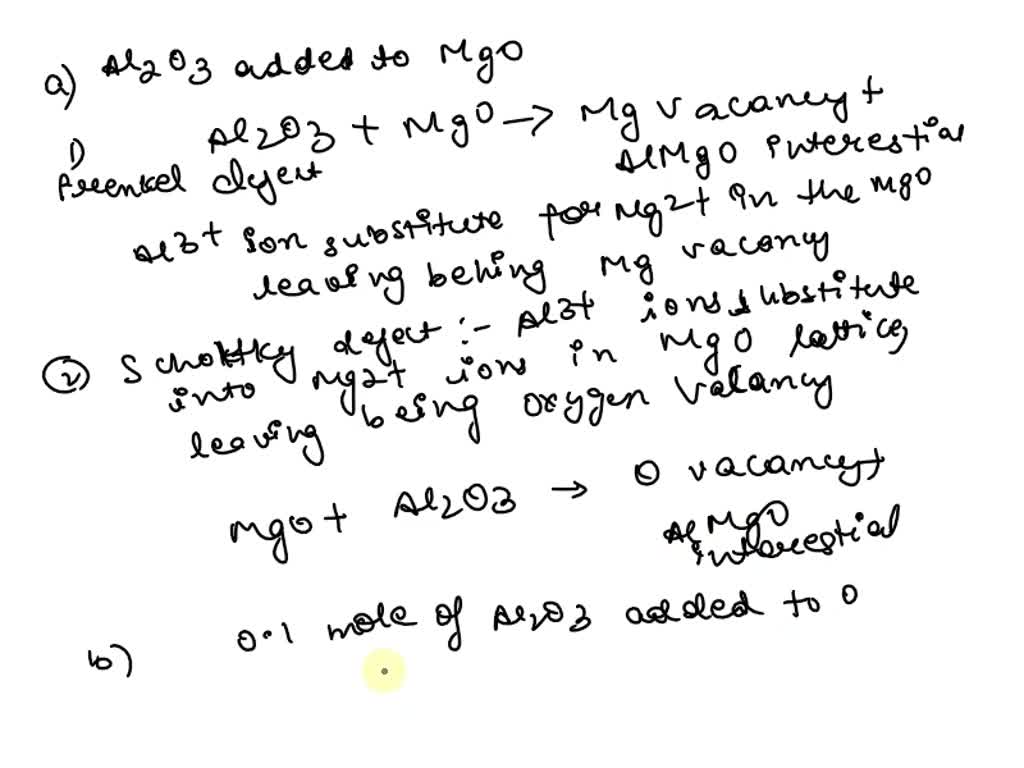 a) Al2O3 added to MgO
Al2O3 + MgO → Mg vacancy +
AlMgO interestial
1)
Freenkel dject
Al3+ ion substitute for Mg2+ in the MgO
leaving behing Mg vacancy
2) Schottky deject :- Al3+ ions substitute
into Mg2+ ions in MgO lattice,
leaving being oxygen valancy
MgO + Al2O3 → O vacancy+
AlMgO
interestial
b) 0.1 mole of Al2O3 added to O